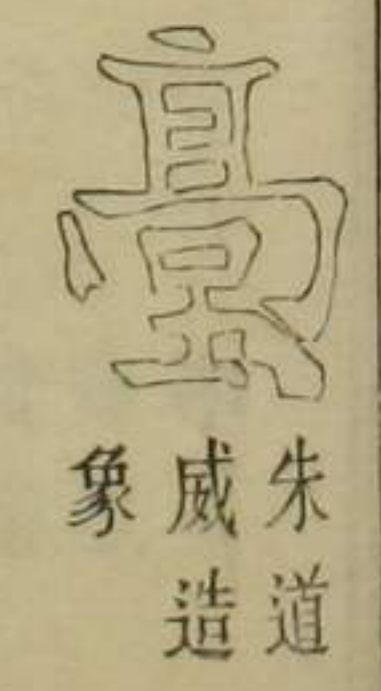 朱道
威造
象